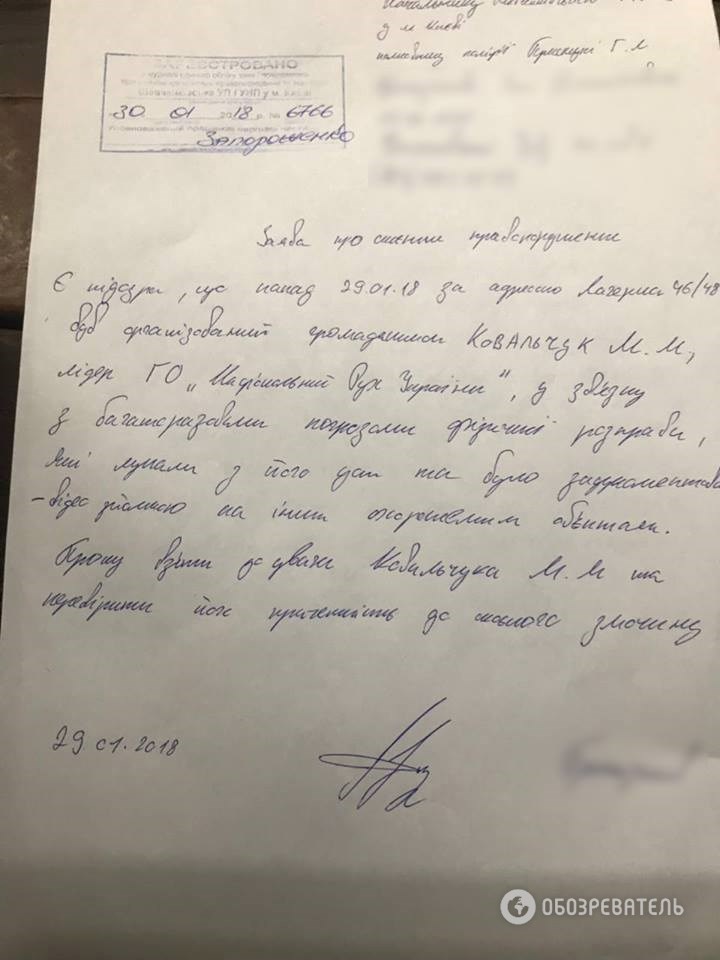 у м Києві
Г. Л
ЗАРЕЄСТРОВАНО
Шевченківське УП ГУНП у м. Києві
30. 01 2018 р. № 6766
Запорошенко
Заява про скоєння правопорушення
Є підозра, що напад 29.01.18 за адресою Лагерна 46/48
був організований громадянином Ковальчук М. М,
лідер ГО „Національний Рух України", у звязку
з багаторазовими погрозами фізичної розправи,
які лунали з його уст та було задокументова
відео зйомкою на інших обєктах.
Прошу взяти до уваги Ковальчука М. М та
перевірити його причетність до скоєного злочину
29.01.2018
ОБОЗРЕВАТЕЛЬ